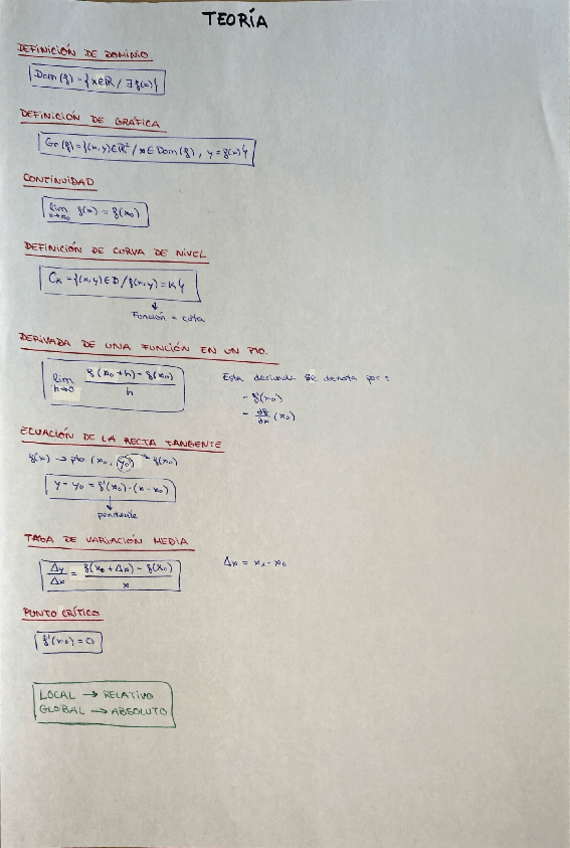 TEORÍA
DEFINICIÓN DE DOMINIO
Dom(f) = {x∈ℝ / ∃ f(x)}
DEFINICIÓN DE GRÁFICA
Gr(f) = {(x,y)∈ℝ² / x∈Dom(f), y = f(x)}
CONTINUIDAD
lim x→x₀ f(x) = f(x₀)
DEFINICIÓN DE CURVA DE NIVEL
Cₖ = {(x,y)∈D / f(x,y) = K}
Función = cota
DERIVADA DE UNA FUNCIÓN EN UN PTO.
lim h→0 (f(x₀+h) - f(x₀)) / h
Esta derivada se denota por:
- f'(x₀)
- df/dx (x₀)
ECUACIÓN DE LA RECTA TANGENTE
f(x) → pto (x₀, y₀) → f(x₀)
y - y₀ = f'(x₀)·(x - x₀)
pendiente
TASA DE VARIACIÓN MEDIA
Δy/Δx = (f(x₀ + Δx) - f(x₀)) / x
Δx = x₁ - x₀
PUNTO CRÍTICO
f'(x₀) = 0
LOCAL → RELATIVO
GLOBAL → ABSOLUTO